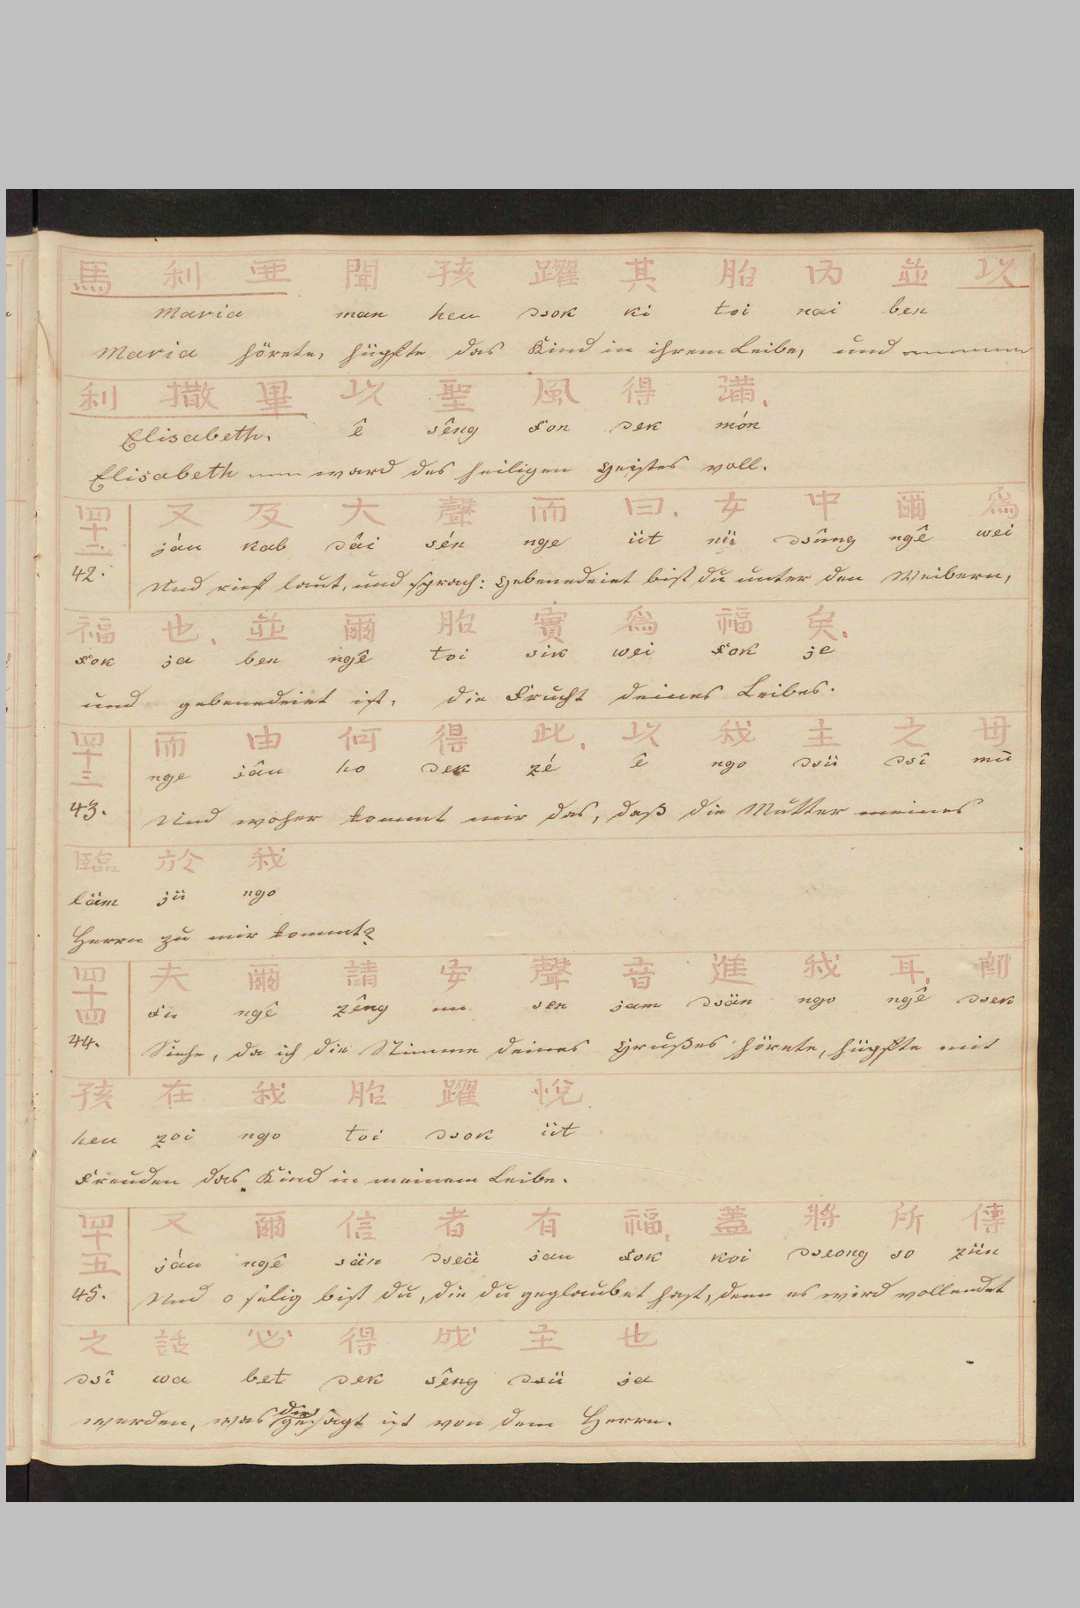 馬 利 亜 聞 孩 躍 其 胎 內 並 以
Maria man heu dsok ki toi nai ben
Maria hörete, hüpfte das Kind in ihrem Leibe, und
利 撒 畢 以 聖 風 得 滿.
Elisabeth. ê sêng fon dek món
Elisabeth ward des heiligen Geistes voll.
四十二 又 及 大 聲 而 曰. 女 中 爾 爲
jáu kab dâi sén nge üt nü dsûng ngê wei
42. Und rief laut, und sprach: Gebenedeiet bist du unter den Weibern,
福 也. 並 爾 胎 實 爲 福 矣.
fok ja ben ngê toi sik wei fok je
und gebenedeiet ist, die Frucht deines Leibes.
四十三 而 由 何 得 此. 以 我 主 之 母
nge jâu ho dek zé ê ngo dsü dsî mù
43. Und woher kommt mir das, daß die Mutter meines
臨 於 我
läm jü ngo
Herrn zu mir kommt?
四十四 夫 爾 請 安 聲 音 進 我 耳. 卽
fu ngê zêng on sen jam dsän ngo ngê dsek
44. Siehe, da ich die Stimme deines Grußes hörete, hüpfte mit
孩 在 我 胎 躍 悅
heu zoi ngo toi dsok üt
Freuden das Kind in meinem Leibe.
四十五 又 爾 信 者 有 福. 蓋 將 所 傳
jáu ngê sän dseä jau fok koi dseong so zün
45. Und o selig bist du, die du geglaubet hast, denn es wird vollendet
之 話 必 得 成 主 也
dsî wa bet dek sêng dsü ja
werden, was die gesagt ist von dem Herrn.